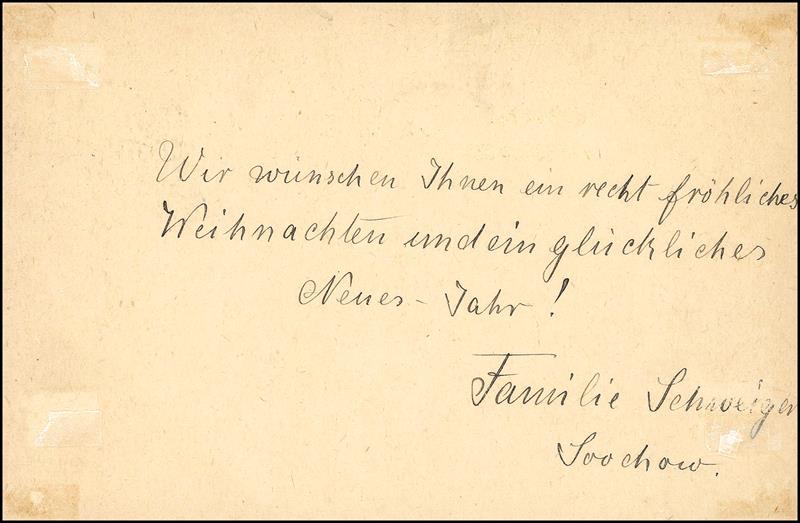 Wir wünschen Ihnen ein recht fröhliches
Weihnachten und ein glückliches
Neues - Jahr!
Familie Schweiger
Soochow.